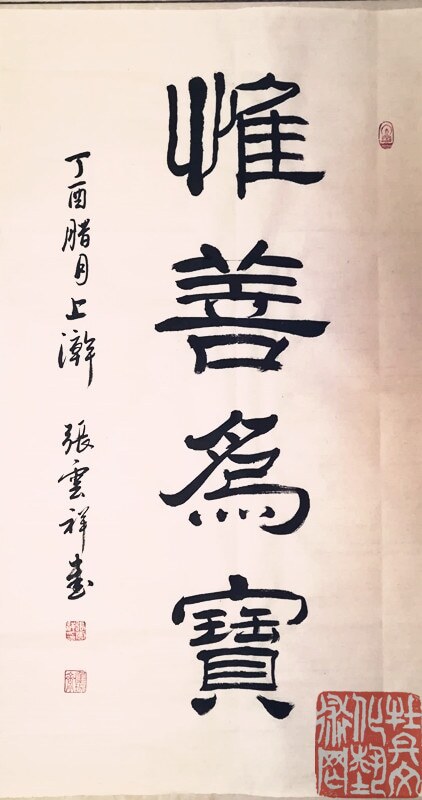 惟善為寶
丁酉腊月上澣 張雲祥書